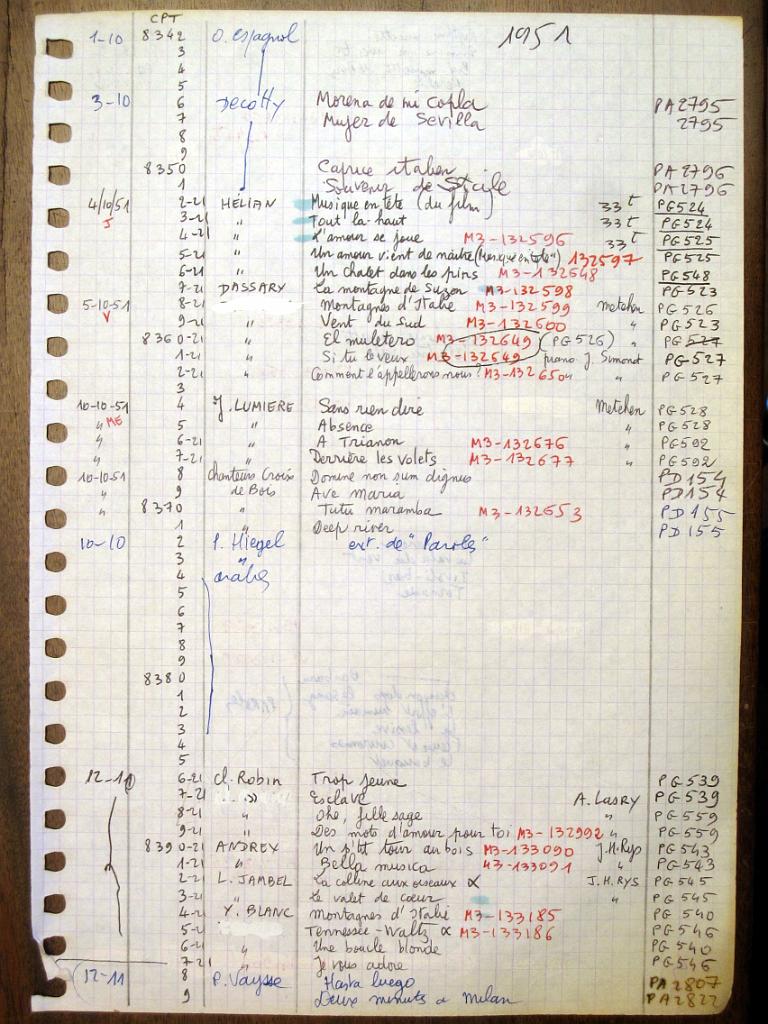 CPT
1951
1-10 8342 O. espagnol
3
4
5
3-10 6 Decotty Morena de mi copla PA2795
7 Mujer de Sevilla 2795
8
9
8350 Caprice italien PA2796
1 Souvenir de Sicile PA2796
4/10/51 2-21 HÉLIAN Musique en tête (du film) 33t PG524
J 3-21 " Tout la-haut 33t PG524
4-21 " L'amour se joue M3-132596 33t PG525
5-21 " Un amour vient de naître (Musique en tête") 132597 PG525
6-21 " Un chalet dans les pins M3-132548 PG548
7-21 DASSARY La montagne de Suzon M3-132598 PG523
5-10-51 8-21 Montagnes d'Italie M3-132599 metchen PG526
V 9-21 " Vent du Sud M3-132600 " PG523
8360-21 " El muletero M3-132649 (PG526) " PG527
1-21 " Si tu le veux M3-132649 piano J. Simonot PG527
2-21 " Comment l'appellerons nous? M3-132650 " " PG527
3
10-10-51 4 J. LUMIERE Sans rien dire metchen PG528
" ME 5 " Absence " PG528
" 6-21 " A Trianon M3-132676 PG592
" 7-21 " Derrière les volets M3-132677 " PG592
10-10-51 8 chanteurs Croix Domine non sum dignus PD154
" 9 de Bois Ave Maria PD154
" 8370 " Tutu maramba M3-132653 PD155
1 " Deep river PD155
10-10 2 P. Hiegel ext. de "Paroles"
3 "
4 arabes
5
6
7
8
9
8380
1
2
3
4
5
12-11 6-21 Cl. Robin Trop jeune PG539
7-21 " Esclave A. Lasry PG539
8-21 " Oho, fille sage " PG559
9-21 " Des mots d'amour pour toi M3-132992 " PG559
8390-21 ANDREX Un p'tit tour au bois M3-133090 J.H.Rys PG543
1-21 " Bella musica M3-133091 " PG543
2-21 L. JAMBEL La colline aux oiseaux ∝ J.H.RYS PG545
3-21 " Le valet de cœur " PG545
4-21 Y. BLANC Montagnes d'Italie M3-133185 PG540
5-21 Tennessee-Waltz ∝ M3-133186 PG546
6-21 " Une boucle blonde PG540
7-21 " Je vous adore PG546
12-11 8 P. Vaysse Hasta luego PA2807
9 Deux minuets a Milan PA2822